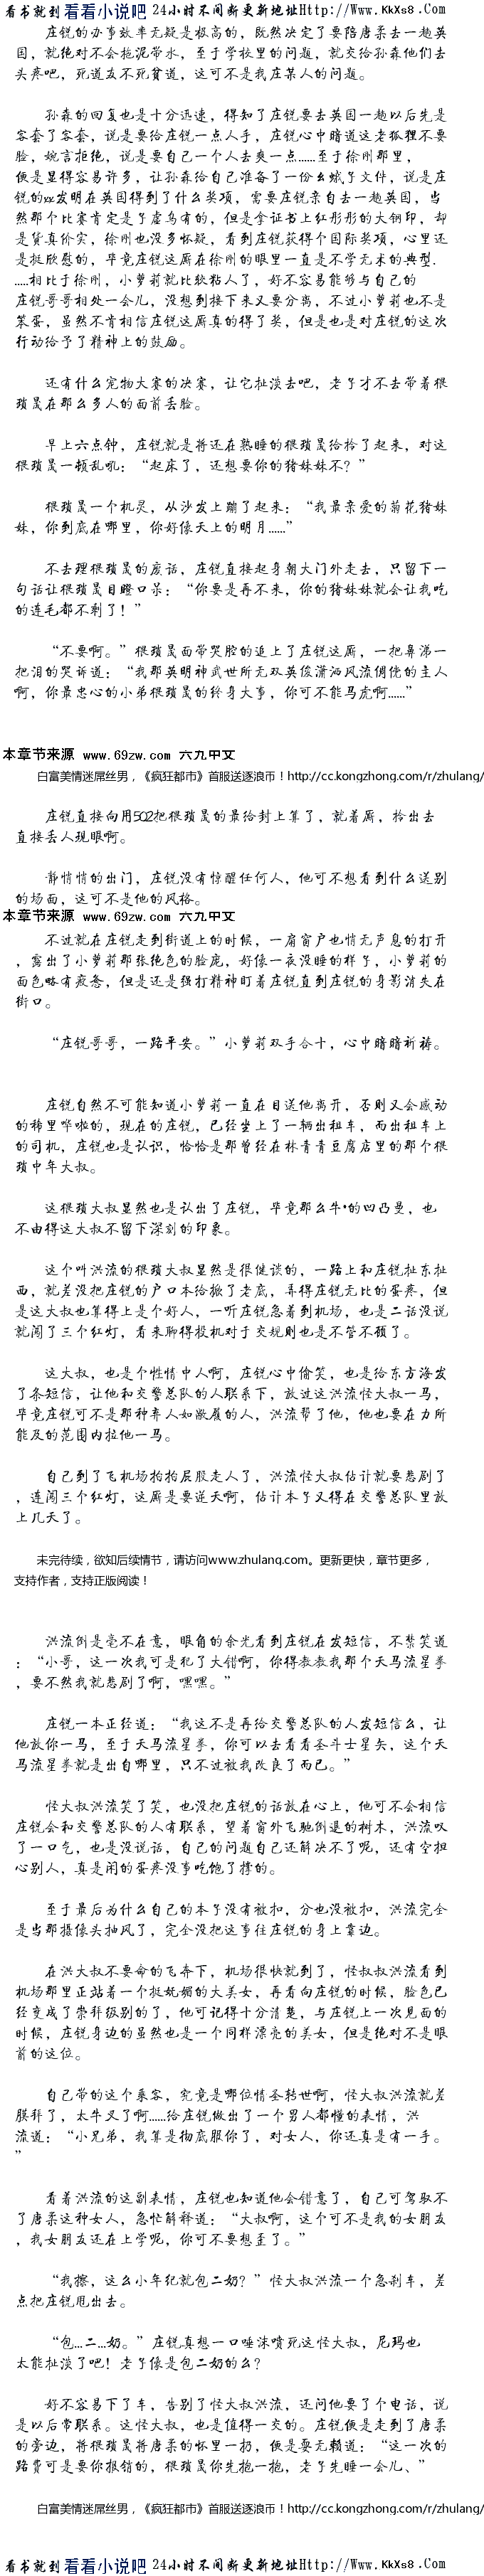 看书就到 看看小说吧 24小时不间断更新地址Http://Www.KkXs8.Com
庄锐的办事效率无疑是极高的，既然决定了要陪唐柔去一趟英
国，就绝对不会拖泥带水，至于学校里的问题，就交给孙森他们去
头疼吧，死道友不死贫道，这可不是我庄某人的问题。
孙森的回复也是十分迅速，得知了庄锐要去英国一趟以后先是
客套了客套，说是要给庄锐一点人手，庄锐心中暗道这老狐狸不要
脸，婉言拒绝，说是要自己一个人去爽一点……至于徐刚那里，
便是显得容易许多，让孙森给自己准备了一份幺蛾子文件，说是庄
锐的xx发明在英国得到了什么奖项，需要庄锐亲自去一趟英国，当
然那个比赛肯定是子虚乌有的，但是拿证书上红彤彤的大钢印，却
是货真价实，徐刚也没多怀疑，看到庄锐获得个国际奖项，心里还
是挺欣慰的，毕竟庄锐这厮在徐刚的眼里一直是不学无术的典型.
.....相比于徐刚，小萝莉就比较粘人了，好不容易能够与自己的
庄锐哥哥相处一会儿，没想到接下来又要分离，不过小萝莉也不是
笨蛋，虽然不肯相信庄锐这厮真的得了奖，但是也是对庄锐的这次
行动给予了精神上的鼓励。
还有什么宠物大赛的决赛，让它扯淡去吧，老子才不去带着猥
琐晟在那么多人的面前丢脸。
早上六点钟，庄锐就是将还在熟睡的猥琐晟给拎了起来，对这
猥琐晟一顿乱吼：“起床了，还想要你的猪妹妹不？”
猥琐晟一个机灵，从沙发上蹦了起来：“我最亲爱的菊花猪妹
妹，你到底在哪里，你好像天上的明月……”
不去理猥琐晟的废话，庄锐直接起身朝大门外走去，只留下一
句话让猥琐晟目瞪口呆：“你要是再不来，你的猪妹妹就会让我吃
的连毛都不剩了！”
“不要啊。”猥琐晟面带哭腔的追上了庄锐这厮，一把鼻涕一
把泪的哭诉道：“我那英明神武世所无双英俊潇洒风流倜傥的主人
啊，你最忠心的小弟猥琐晟的终身大事，你可不能马虎啊……”
本章节来源 www.69zw.com 六九中文
白富美情迷屌丝男，《疯狂都市》首服送逐浪币！http://cc.kongzhong.com/r/zhulang/
庄锐直接向用502把猥琐晟的嘴给封上算了，就着厮，拎出去
直接丢人现眼啊。
静悄悄的出门，庄锐没有惊醒任何人，他可不想看到什么送别
的场面，这可不是他的风格。
本章节来源 www.69zw.com 六九中文
不过就在庄锐走到街道上的时候，一扇窗户也悄无声息的打开
，露出了小萝莉那张绝色的脸庞，好像一夜没睡的样子，小萝莉的
面色略有疲惫，但是还是强打精神盯着庄锐直到庄锐的身影消失在
街口。
“庄锐哥哥，一路平安。”小萝莉双手合十，心中暗暗祈祷。
庄锐自然不可能知道小萝莉一直在目送他离开，否则又会感动
的稀里哗啦的，现在的庄锐，已经坐上了一辆出租车，而出租车上
的司机，庄锐也是认识，恰恰是那曾经在林青青豆腐店里的那个猥
琐中年大叔。
这猥琐大叔显然也是认出了庄锐，毕竟那么牛*的凹凸曼，也
不由得这大叔不留下深刻的印象。
这个叫洪流的猥琐大叔显然是很健谈的，一路上和庄锐扯东扯
西，就差没把庄锐的户口本给掀了老底，弄得庄锐无比的蛋疼，但
是这大叔也算得上是个好人，一听庄锐急着到机场，也是二话没说
就闯了三个红灯，看来聊得投机对于交规则也是不管不顾了。
这大叔，也是个性情中人啊，庄锐心中偷笑，也是给东方海发
了条短信，让他和交警总队的人联系下，放过这洪流怪大叔一马，
毕竟庄锐可不是那种弃人如敝履的人，洪流帮了他，他也要在力所
能及的范围内拉他一马。
自己到了飞机场拍拍屁股走人了，洪流怪大叔估计就要悲剧了
，连闯三个红灯，这厮是要逆天啊，估计本子又得在交警总队里放
上几天了。
未完待续，欲知后续情节，请访问www.zhulang.com。更新更快，章节更多，
支持作者，支持正版阅读！
洪流倒是毫不在意，眼角的余光看到庄锐在发短信，不禁笑道
：“小哥，这一次我可是犯了大错啊，你得教教我那个天马流星拳
，要不然我就悲剧了啊，嘿嘿。”
庄锐一本正经道：“我这不是再给交警总队的人发短信么，让
他放你一马，至于天马流星拳，你可以去看看圣斗士星矢，这个天
马流星拳就是出自哪里，只不过被我改良了而已。”
怪大叔洪流笑了笑，也没把庄锐的话放在心上，他可不会相信
庄锐会和交警总队的人有联系，望着窗外飞驰倒退的树木，洪流叹
了一口气，也是没说话，自己的问题自己还解决不了呢，还有空担
心别人，真是闲的蛋疼没事吃饱了撑的。
至于最后为什么自己的本子没有被扣，分也没被扣，洪流完全
是当那摄像头抽风了，完全没把这事往庄锐的身上靠边。
在洪大叔不要命的飞奔下，机场很快就到了，怪叔叔洪流看到
机场那里正站着一个挺妩媚的大美女，再看向庄锐的时候，脸色已
经变成了崇拜级别的了，他可记得十分清楚，与庄锐上一次见面的
时候，庄锐身边的虽然也是一个同样漂亮的美女，但是绝对不是眼
前的这位。
自己带的这个乘客，究竟是哪位情圣转世啊，怪大叔洪流就差
膜拜了，太牛叉了啊……给庄锐做出了一个男人都懂的表情，洪
流道：“小兄弟，我算是彻底服你了，对女人，你还真是有一手。
”
看着洪流的这副表情，庄锐也知道他会错意了，自己可驾驭不
了唐柔这种女人，急忙解释道：“大叔啊，这个可不是我的女朋友
，我女朋友还在上学呢，你可不要想歪了。”
“我擦，这么小年纪就包二奶？”怪大叔洪流一个急刹车，差
点把庄锐甩出去。
“包…二…奶。”庄锐真想一口唾沫喷死这怪大叔，尼玛也
太能扯淡了吧！老子像是包二奶的么？
好不容易下了车，告别了怪大叔洪流，还问他要了个电话，说
是以后常联系。这怪大叔，也是值得一交的。庄锐便是走到了唐柔
的旁边，将猥琐晟将唐柔的怀里一扔，便是耍无赖道：“这一次的
路费可是要你报销的，猥琐晟你先抱一抱，老子先睡一会儿、”
白富美情迷屌丝男，《疯狂都市》首服送逐浪币！http://cc.kongzhong.com/r/zhulang/
看书就到 看看小说吧 24小时不间断更新地址Http://Www.KkXs8.Com